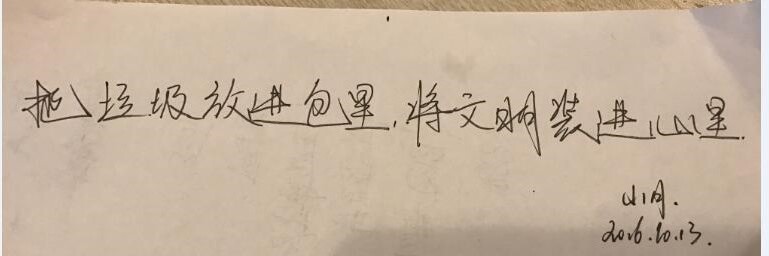 把垃圾放进包里,将文明装进心里.
小月.
2016.10.13.